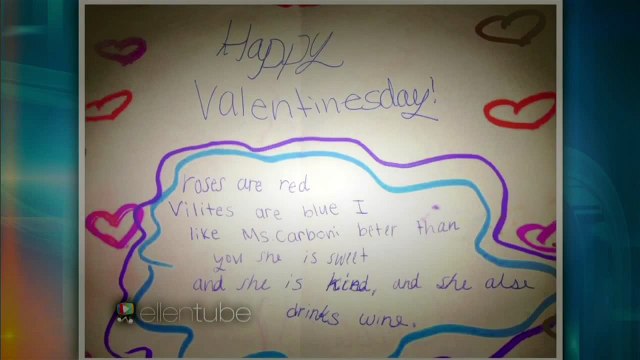 Happy
Valentinesday!
roses are red
Vilites are blue I
like Ms Carboni beter than
you she is sweet
and she is kind, and she alse
drinks wine.
ellentube